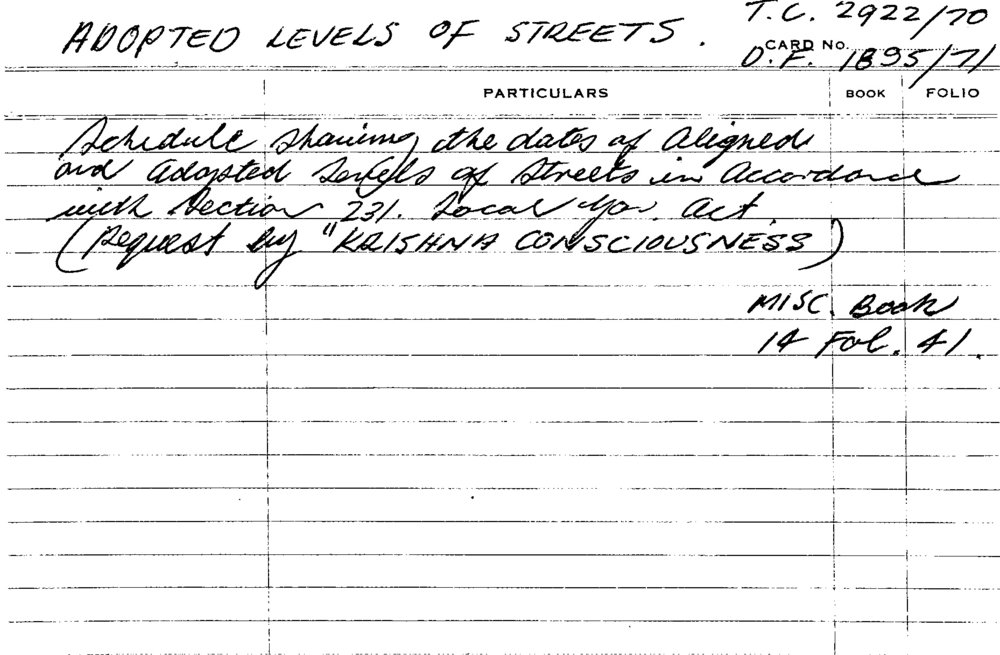 T.C. 2922/70
ADOPTED LEVELS OF STREETS.
CARD No.
D.F. 1895/71
PARTICULARS BOOK FOLIO
Schedule showing the dates of Aligned
and Adopted Levels of Streets in Accordance
with Section 231. Local Gov. Act.
(Request by "KRISHNA CONSCIOUSNESS)
MISC. Book
14 Fol. 41.